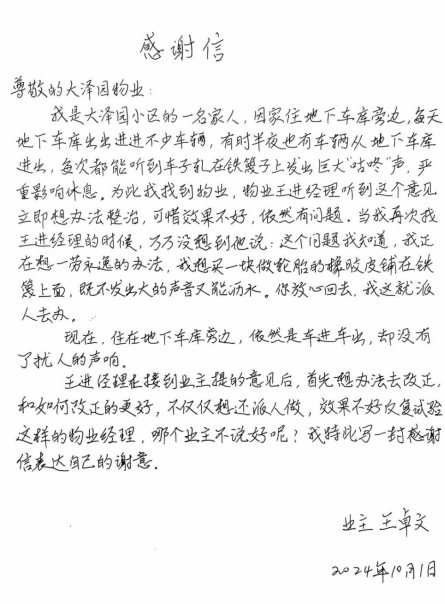 感谢信
尊敬的大泽园物业:
我是大泽园小区的一名家人,因家住地下车库旁边,每天
地下车库出出进进不少车辆,有时半夜也有车辆从地下车库
进出,每次都能听到车子轧在铁篦子上发出巨大“咕咚”声,严
重影响休息。为此我找到物业,物业王进经理听到这个意见
立即想办法整治,可惜效果不好,依然有问题。当我再次找
王进经理的时候,万万没想到他说:这个问题我知道,我正
在想一劳永逸的办法,我想买一块做轮胎的橡胶皮铺在铁
篦上面,既不发出大的声音又能沥水。你放心回去,我这就派
人去办。
现在,住在地下车库旁边,依然是车进车出,却没有
了扰人的声响。
王进经理在接到业主提的意见后,首先想办法去改正,
和如何改正的更好,不仅仅想还派人做,效果不好反复试验
这样的物业经理,哪个业主不说好呢?我特此写一封感谢
信表达自己的谢意。
业主 王卓文
2024年10月1日